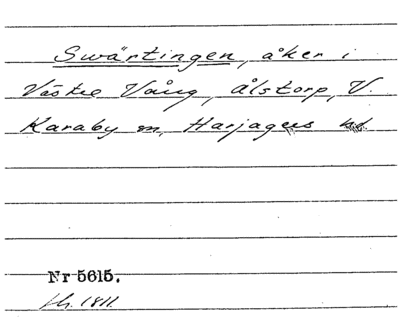 Swärtingen, åker i
Västre Vång, Ålstorp, V.
Karaby sn, Harjagers hd.
Nr 5615.
1811.